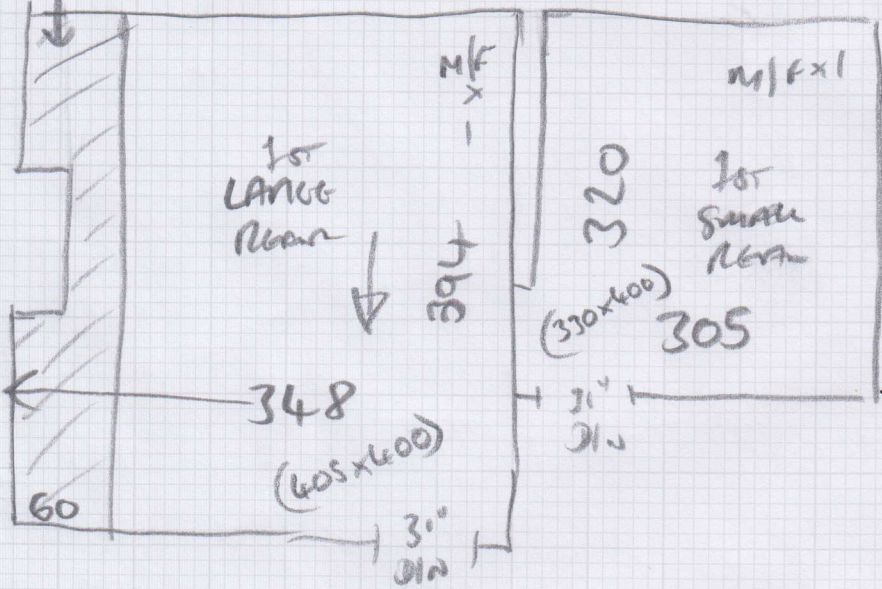 M/F
x
1
1ST
LARGE
RETAIL
394
348
(405x400)
60
31"
DIN
M/Fx1
320
1ST
SMALL
RETAIL
(330x400)
305
31"
DIN